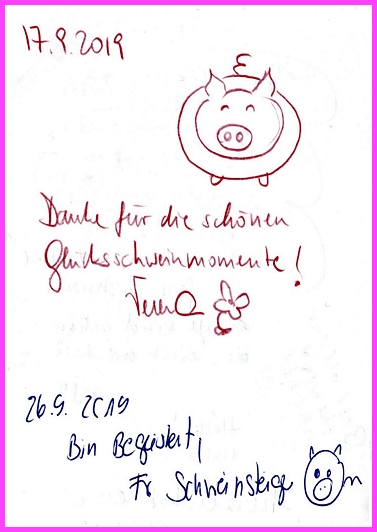 17.9.2019
Danke für die schönen
Glücksschweinmomente!
Verena
26.9. 2019
Bin Begeistert,
Fr Schweinsteiger